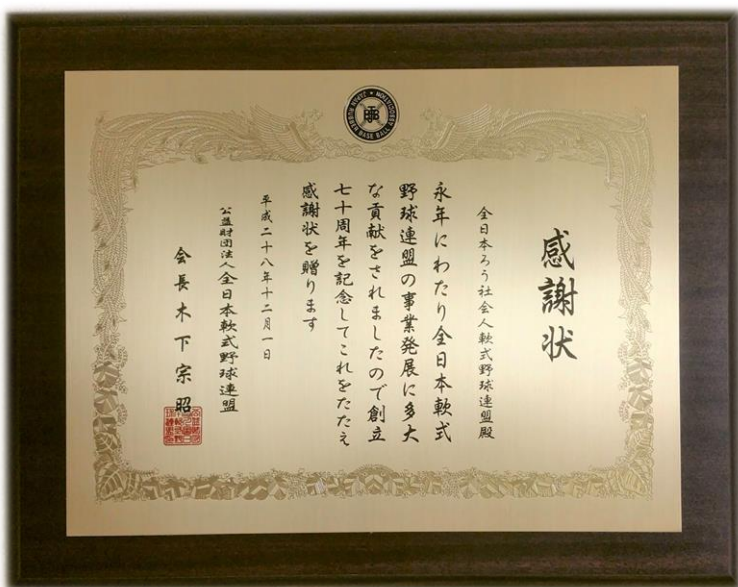 感謝状
全日本ろう社会人軟式野球連盟殿
永年にわたり全日本軟式
野球連盟の事業発展に多大
な貢献をされましたので創立
七十周年を記念してこれをたたえ
感謝状を贈ります
平成二十八年十二月一日
公益財団法人全日本軟式野球連盟
会長木下宗昭